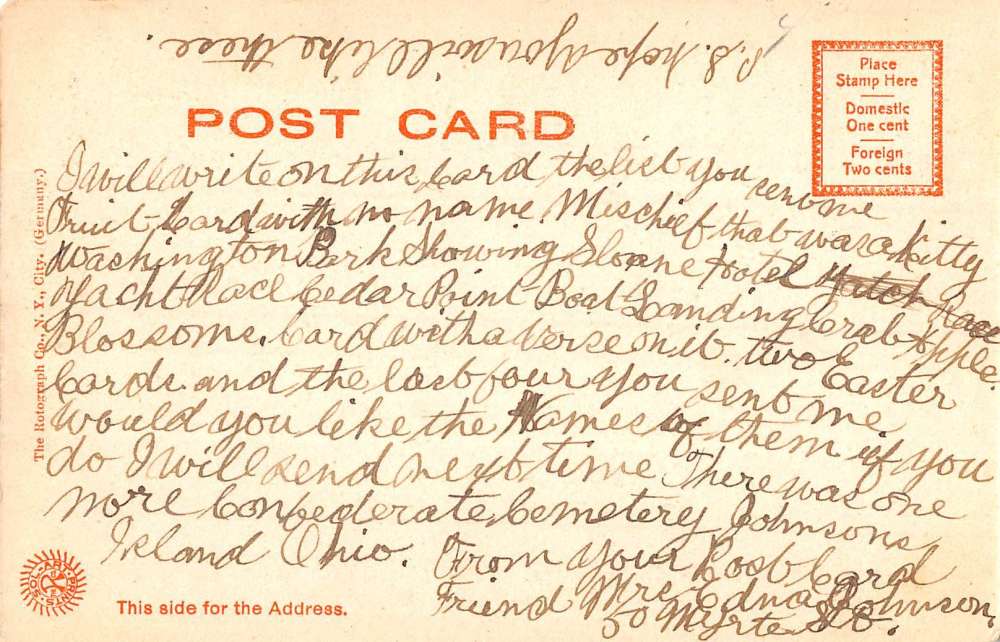 P.S. hope you will like these.
POST CARD
Place
Stamp Here
Domestic
One cent
Foreign
Two cents
I will write on this card the list you sent me
Fruit Card with no name Mischief that was a Kitty
Washington Park Showing Sloane Hotel
Yacht Race Cedar Point Boat Landing Crab Apple
Blossoms. Card with a verse on it. two Easter
Cards. and the last four you sent me.
would you like the Names of them if you
do I will send next time There was one
more Confederate Cemetery Johnsons
Island Ohio. From your Post Card
Friend Mrs Edna Johnson,
50 St.
The Rotograph Co., N. Y. City. (Germany.)
SOL-ART-PRINTS
This side for the Address.